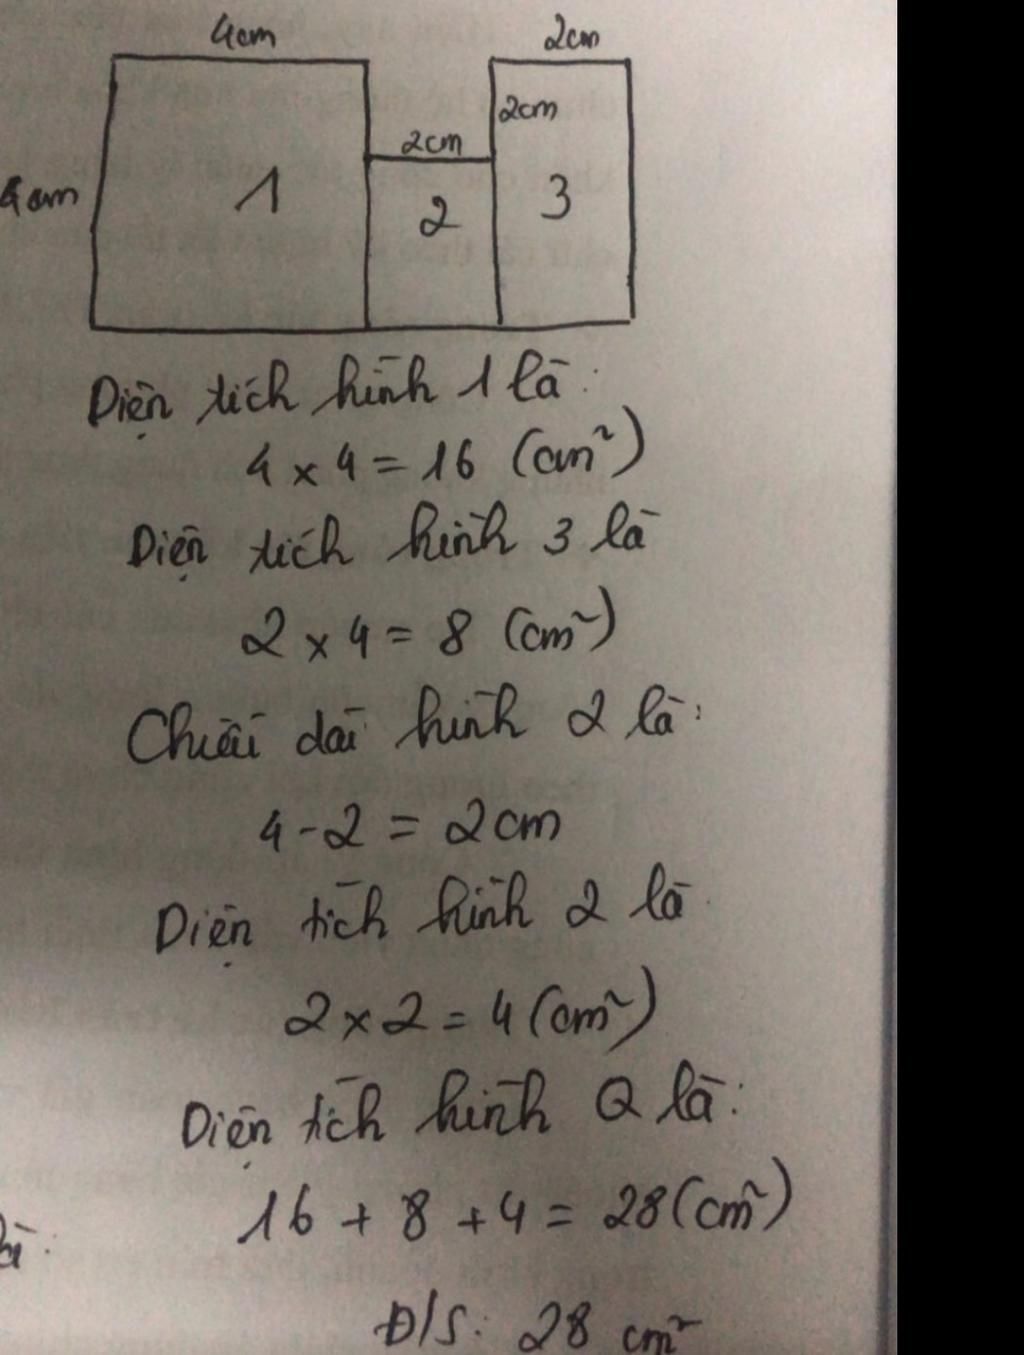 4cm
2cm
2cm
2cm
4cm
1
2
3
Diện tích hình 1 là:
4 x 4 = 16 (cm²)
Diện tích hình 3 là
2 x 4 = 8 (cm²)
Chiều dài hình 2 là:
4 - 2 = 2cm
Diện tích hình 2 là
2 x 2 = 4 (cm²)
Diện tích hình Q là:
16 + 8 + 4 = 28 (cm²)
Đ/S: 28 cm²